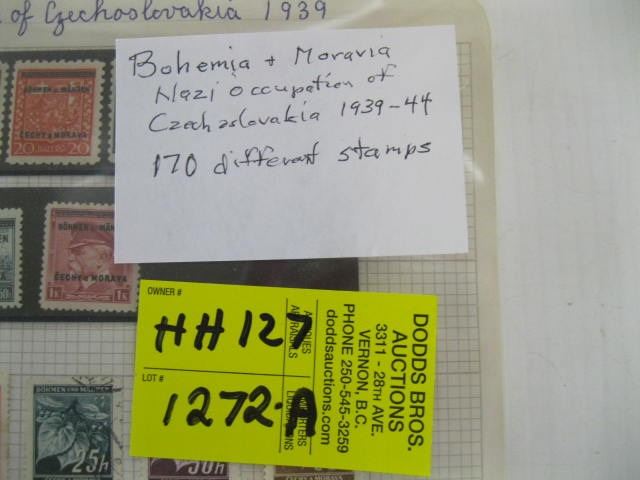 of Czechoslovakia 1939
Bohemia + Moravia
Nazi occupation of
Czechaslovakia 1939-44
170 different stamps
BÖHMEN u. MÄHREN
ČECHY a MORAVA
20 20
BÖHMEN u. MÄH
ČECHY a MORAVA
1K 1K
OWNER #
HH127
LOT #
1272-A
DODDS BROS.
AUCTIONS
3311 - 28TH AVE.
VERNON, B.C.
PHONE 250-545-3259
doddsauctions.com
BÖHMEN UND MÄHREN
25h
50h